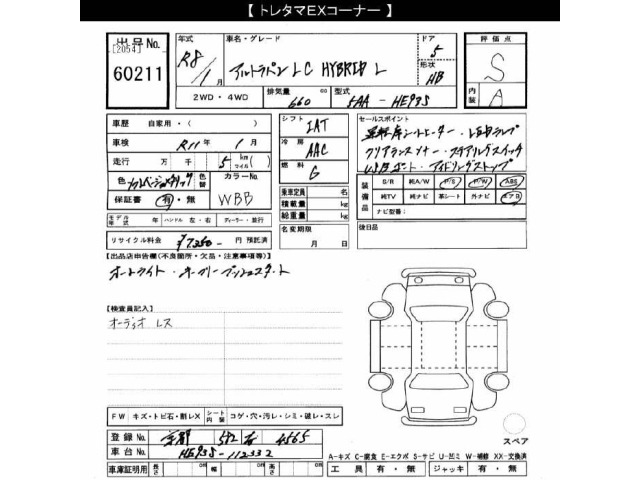 【 トレタマEXコーナー 】
出品No.
[2054]
60211
年式
R8/1月
車名・グレード
アルトラパン LC HYBRID L
ドア
5
形状
HB
2WD・4WD
排気量
660 cc
型式
5AA - HE93S
評価点
S
内装
A
車歴 自家用・( )
車検 R11年 1月
走行 万 千 5 km(マイル)
色
色替
カラーNo.
WBB
保証書 有・無
モデル年式 年 ハンドル 左・右 ディーラー・並行
リサイクル料金 ¥7,350- 円 預託済
シフト
IAT
冷房
AAC
燃料
G
乗車定員 名
積載量 kg
総重量 kg
名変期限
月 日
セールスポイント
運転席シートヒーター・LEDランプ
クリアランスソナー・ステアリングスイッチ
USBポート・アイドリングストップ
装備品
S/R 純A/W P/S P/W ABS
純TV 純ナビ 革シート 外ナビ エアB
ナビ型番:
後日品
【出品店申告欄(不良箇所・欠品・注意事項等)】
オートライト・キーフリープッシュスタート
【検査員記入】
オーディオ レス
FW キズ・トビ石・割レX シート内装 コゲ・穴・汚レ・シミ・破レ・スレ
登録No. 京都 582 を 4565
車台No. HE93S-112332
車庫証明用 長さ 幅 高さ
スペア
A-キズ C-腐食 E-エクボ S-サビ U-凹ミ W-補修 XX-交換済
工具 有・無 ジャッキ 有・無